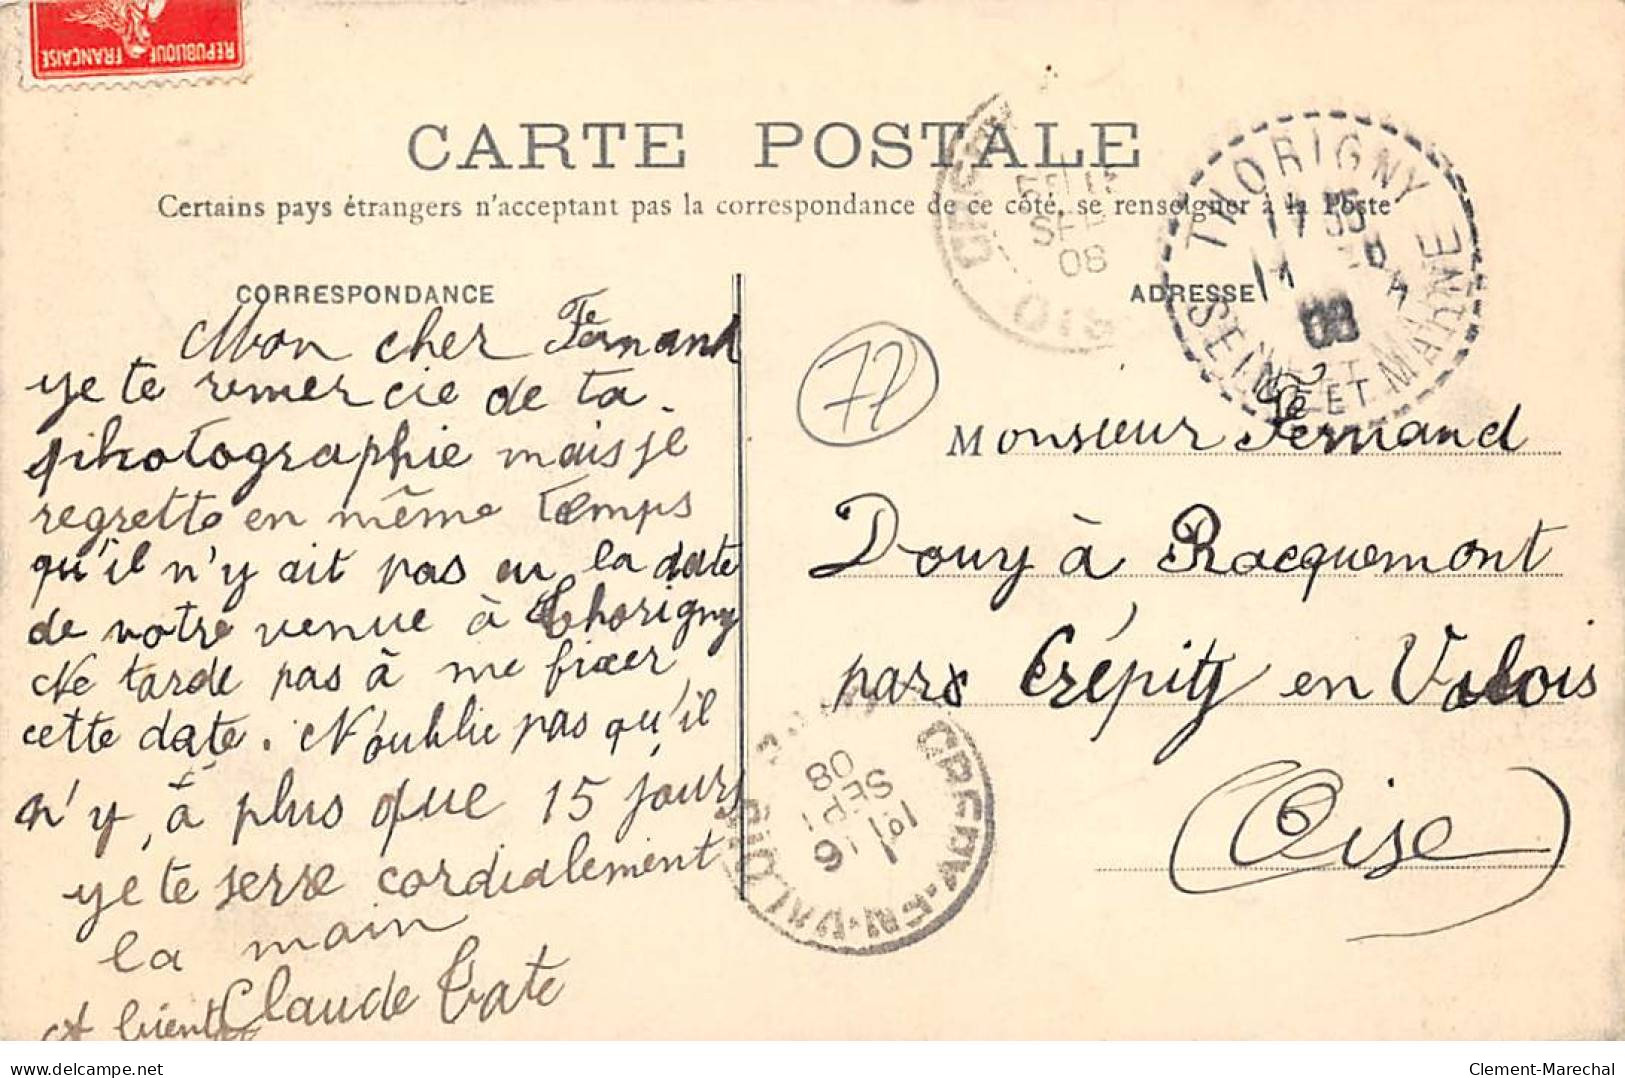 REPUBLIQUE FRANÇAISE
CARTE POSTALE
Certains pays étrangers n'acceptant pas la correspondance de ce côté, se renseigner à la Poste
CORRESPONDANCE
Mon cher Fernand
je te remercie de ta
photographie mais je
regrette en même temps
qu'il n'y ait pas eu la date
de votre venue à Thorigny
Ne tarde pas à me fixer
cette date. N'oublie pas qu'il
n'y, à plus que 15 jours
je te serre cordialement
la main
Claude
A bientôt
ADRESSE
THORIGNY
SEINE ET MARNE
08
SEP
08
OISE
77
Monsieur Fernand
Douy à Rocquemont
par Crépy en Valois
(Oise)
CREPY-EN-VALOIS
SEPT
08
delcampe.net
Clement-Marechal